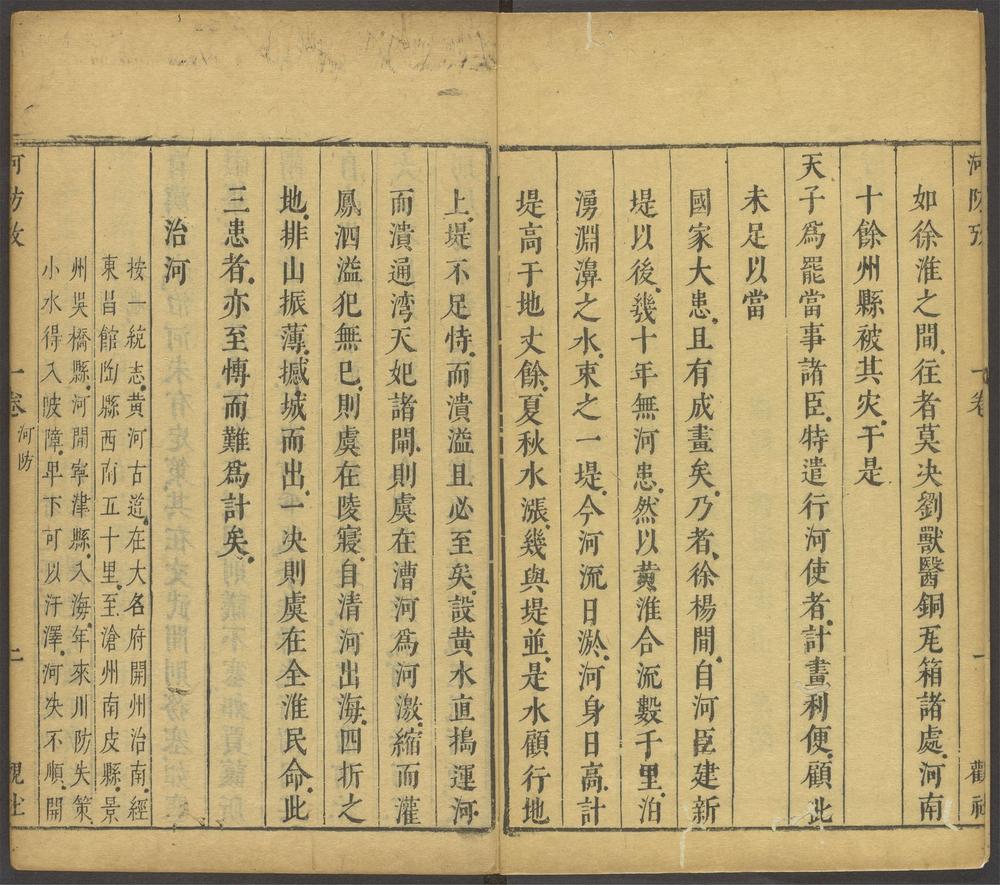 河防攷　一卷　一　觀社
如徐淮之間往者莫决劉獸醫銅瓦箱諸處河南
十餘州縣被其灾于是
天子爲罷當事諸臣特遣行河使者計畫利便顧此
未足以當
國家大患且有成畫矣乃者徐楊間自河臣建新
堤以後幾十年無河患然以黃淮合流數千里泊
湧淵濞之水束之一堤今河流日淤河身日高計
堤高于地丈餘夏秋水漲幾與堤並是水顧行地
上堤不足恃而潰溢且必至矣設黃水直搗運河
而潰通湾天妃諸閘則虞在漕河爲河激縮而灌
鳳泗溢犯無已則虞在陵寢自清河出海四折之
地排山振薄撼城而出一决則虞在全淮民命此
三患者亦至慱而難爲計矣
治河
按一統志黃河古道在大名府開州治南經
東昌館陶縣西南五十里至滄州南皮縣景
州吳橋縣河間寧津縣入海年來川防失策
小水得入陂障卑下可以汙澤河决不順開
河防攷　一卷　河防　二　觀社